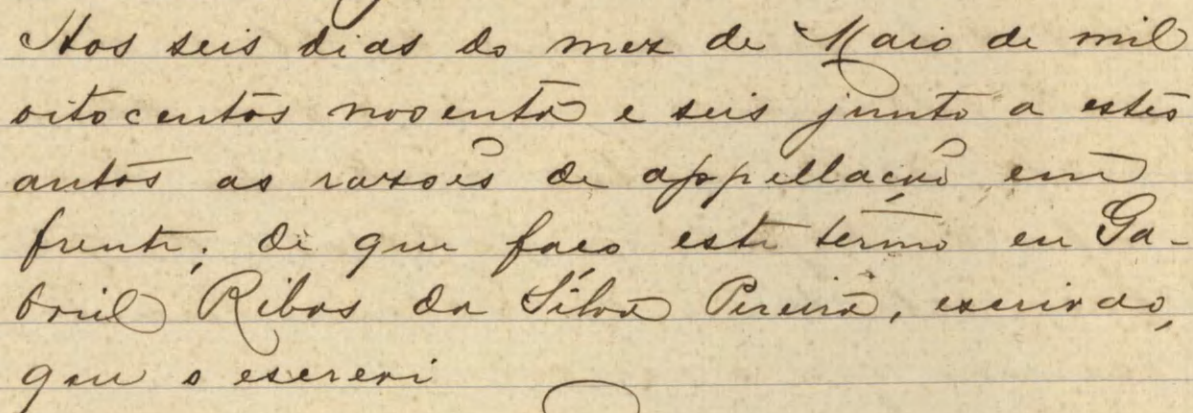 Aos seis dias do mez de Maio de mil
oitocentos noventa e seis junto a estes
autos as razões de appellação em
frente; de que faco este termo eu Ga-
briel Ribas da Silva Pereira, escrivão,
que o escrevi